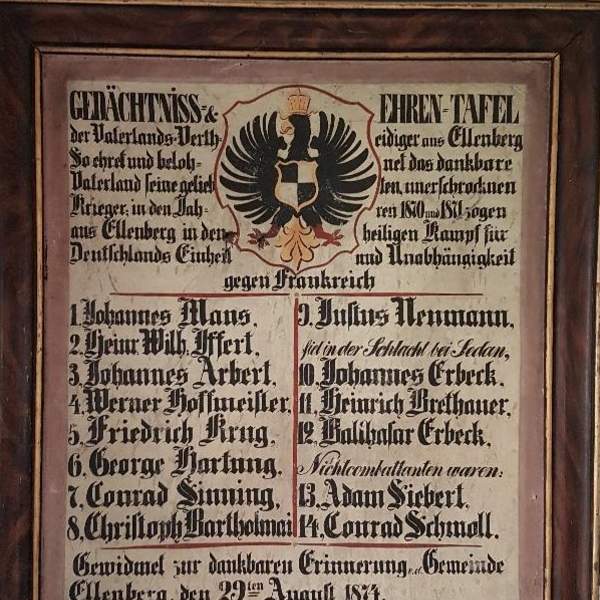 GEDÄCHTNISS- & EHREN-TAFEL
der Vaterlands-Vertheidiger aus Ellenberg
So ehret und belohnet das dankbare
Vaterland seine geliebten, unerschrocknen
Krieger, in den Jahren 1870 und 1871 zogen
aus Ellenberg in den heiligen Kampf für
Deutschlands Einheit und Unabhängigkeit
gegen Frankreich
1. Johannes Maus,
2. Heinr. Wilh. Iffert,
3. Johannes Arbert,
4. Werner Hoffmeister,
5. Friedrich Krug,
6. George Hartung,
7. Conrad Sinning,
8. Christoph Bartholmai
9. Justus Neumann,
fiel in der Schlacht bei Sedan,
10. Johannes Erbeck,
11. Heinrich Brethauer,
12. Balthasar Erbeck,
Nichtcombattanten waren:
13. Adam Siebert,
14. Conrad Schmoll.
Gewidmet zur dankbaren Erinnerung v. d. Gemeinde
Ellenberg, den 29ten August 1874.